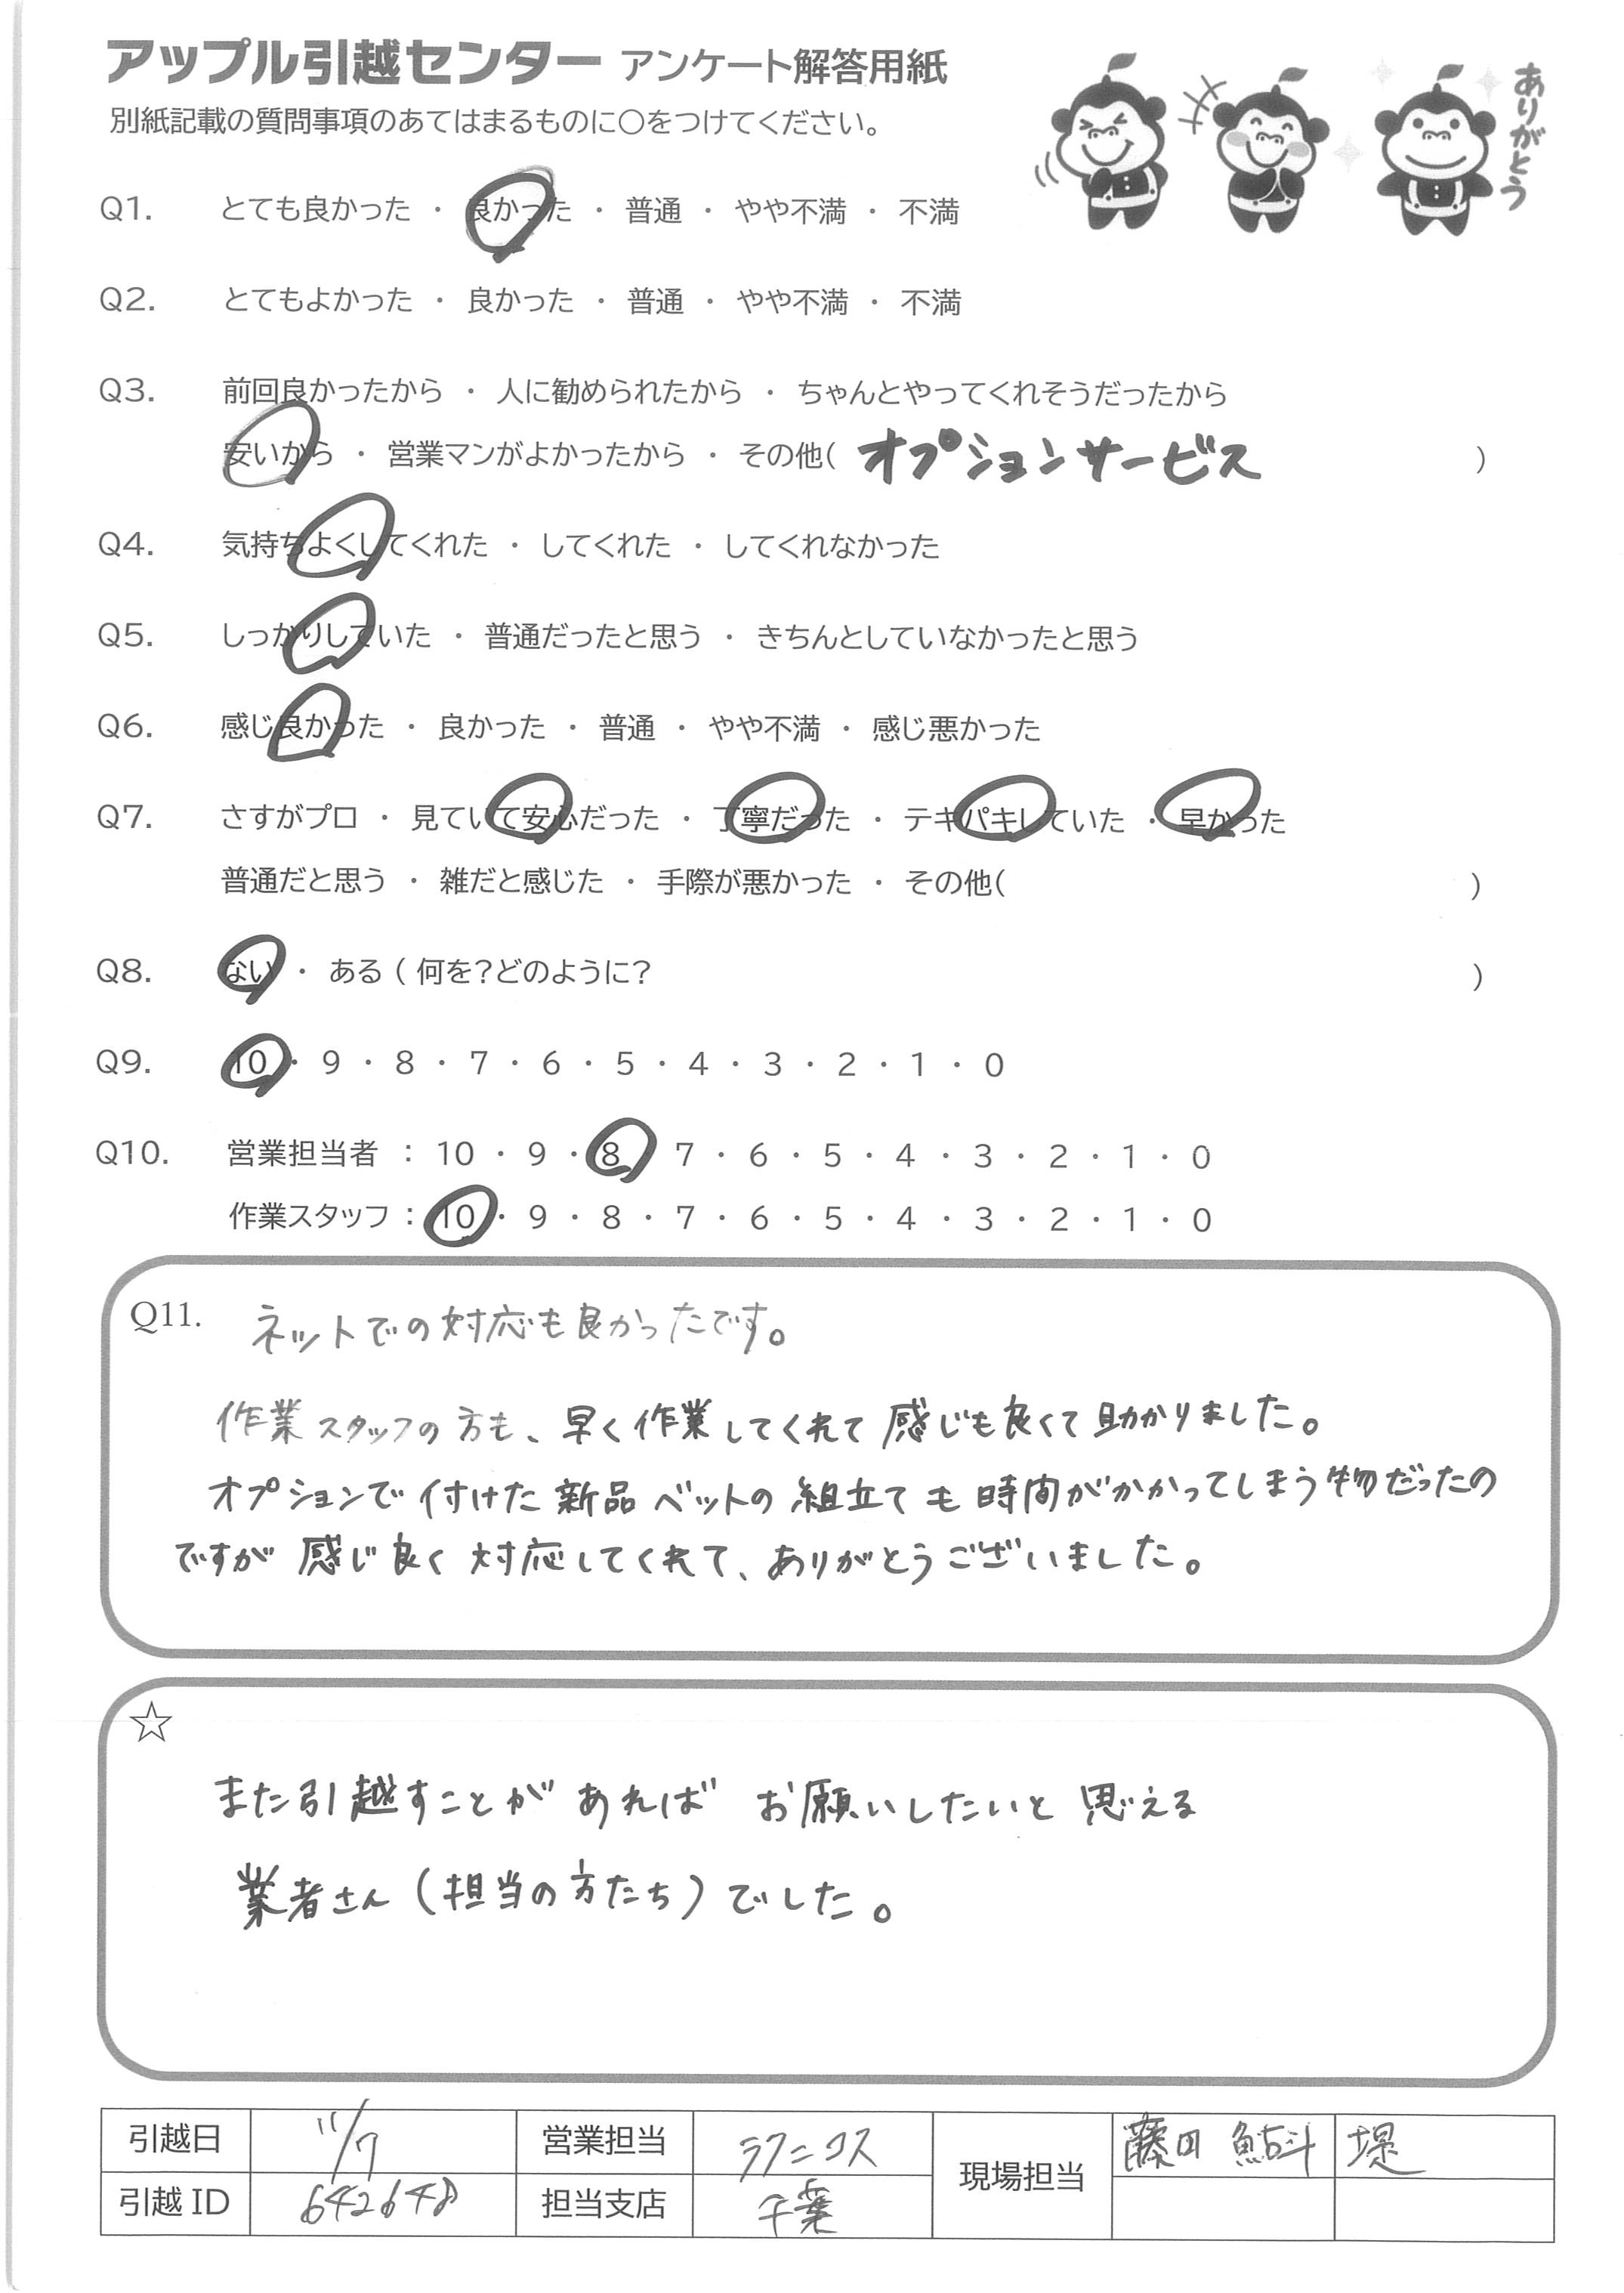 アップル引越センター アンケート解答用紙
別紙記載の質問事項のあてはまるものに○をつけてください。
ありがとう
Q1. とても良かった ・ 良かった ・ 普通 ・ やや不満 ・ 不満
Q2. とてもよかった ・ 良かった ・ 普通 ・ やや不満 ・ 不満
Q3. 前回良かったから ・ 人に勧められたから ・ ちゃんとやってくれそうだったから
安いから ・ 営業マンがよかったから ・ その他( オプションサービス )
Q4. 気持ちよくしてくれた ・ してくれた ・ してくれなかった
Q5. しっかりしていた ・ 普通だったと思う ・ きちんとしていなかったと思う
Q6. 感じ良かった ・ 良かった ・ 普通 ・ やや不満 ・ 感じ悪かった
Q7. さすがプロ ・ 見ていて安心だった ・ 丁寧だった ・ テキパキしていた ・ 早かった
普通だと思う ・ 雑だと感じた ・ 手際が悪かった ・ その他( )
Q8. ない ・ ある ( 何を?どのように? )
Q9. 10 ・ 9 ・ 8 ・ 7 ・ 6 ・ 5 ・ 4 ・ 3 ・ 2 ・ 1 ・ 0
Q10. 営業担当者 : 10 ・ 9 ・ 8 ・ 7 ・ 6 ・ 5 ・ 4 ・ 3 ・ 2 ・ 1 ・ 0
作業スタッフ : 10 ・ 9 ・ 8 ・ 7 ・ 6 ・ 5 ・ 4 ・ 3 ・ 2 ・ 1 ・ 0
Q11. ネットでの対応も良かったです。
作業スタッフの方も、早く作業してくれて感じも良くて助かりました。
オプションで付けた新品ベットの組立ても時間がかかってしまう物だったの
ですが感じ良く対応してくれて、ありがとうございました。
☆
また引越すことがあればお願いしたいと思える
業者さん(担当の方たち)でした。
引越日 11/7 営業担当 現場担当 藤田 鮎斗 堤
引越ID 642648 担当支店 千葉